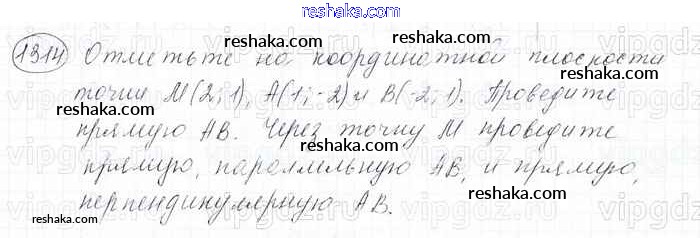 reshaka.com
1314 Отметьте на координатной плоскости
reshaka.com
точки M(2; 1), A(1; -2) и B(-2; 1). Проведите
reshaka.com
прямую AB. Через точку M проведите
прямую, параллельную AB, и прямую,
перпендикулярную AB.
reshaka.com